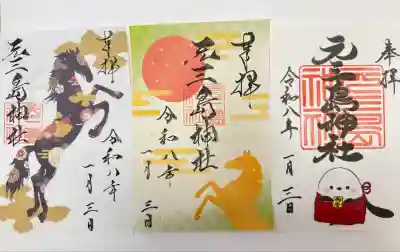 奉拝
元三島神社
令和八年
一月三日
奉拝
元三島神社
令和八年
一月
三日
奉拝
元三島神社
令和八年
一月三日